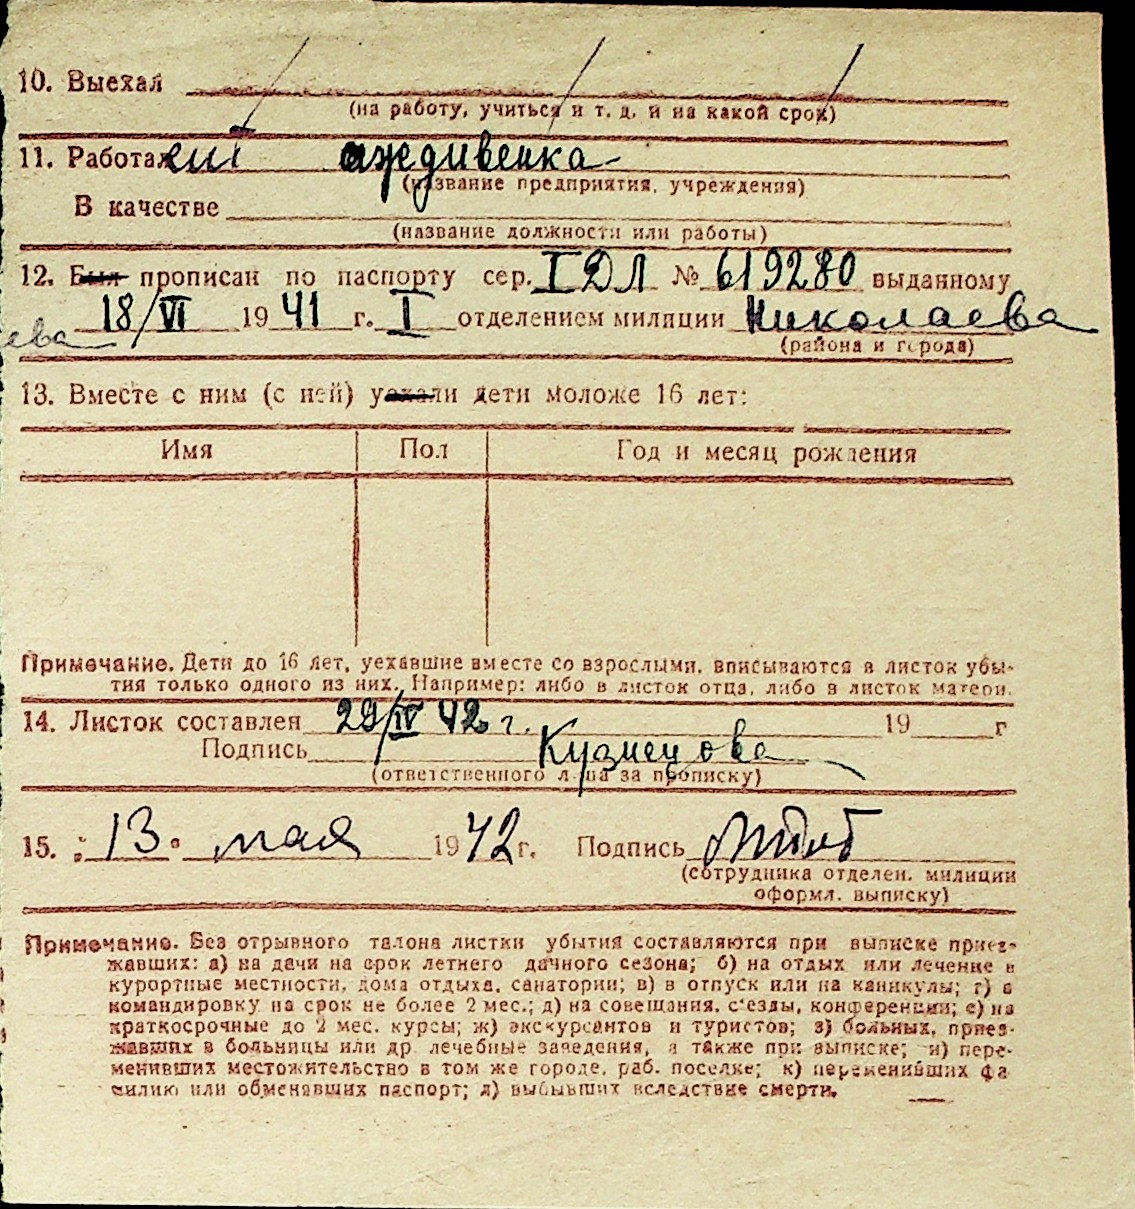 10. Выехал
(на работу, учиться и т. д. и на какой срок)
11. Работает иждивенка
(название предприятия, учреждения)
В качестве
(название должности или работы)
12. Был прописан по паспорту сер. I ДЛ № 619280 выданному
18/VI 1941 г. I отделением милиции Николаева
ева
(района и города)
13. Вместе с ним (с ней) уехали дети моложе 16 лет:
Имя Пол Год и месяц рождения
Примечание. Дети до 16 лет, уехавшие вместе со взрослыми, вписываются в листок убы-
тия только одного из них. Например: либо в листок отца, либо в листок матери.
14. Листок составлен 29/IV 42 г. 19 г
Подпись Кузнецова
(ответственного лица за прописку)
15. „13“ мая 1942 г. Подпись
(сотрудника отделен. милиции
оформл. выписку)
Примечание. Без отрывного талона листки убытия составляются при выписке приез-
жавших: а) на дачи на срок летнего дачного сезона; б) на отдых или лечение в
курортные местности, дома отдыха, санатории; в) в отпуск или на каникулы; г) в
командировку на срок не более 2 мес.; д) на совещания, с'езды, конференции; е) на
краткосрочные до 2 мес. курсы; ж) экскурсантов и туристов; з) больных, приез-
жавших в больницы или др. лечебные заведения, а также при выписке; и) пере-
менивших местожительство в том же городе, раб. поселке; к) переменивших фа
милию или обменявших паспорт; л) выбывших вследствие смерти.